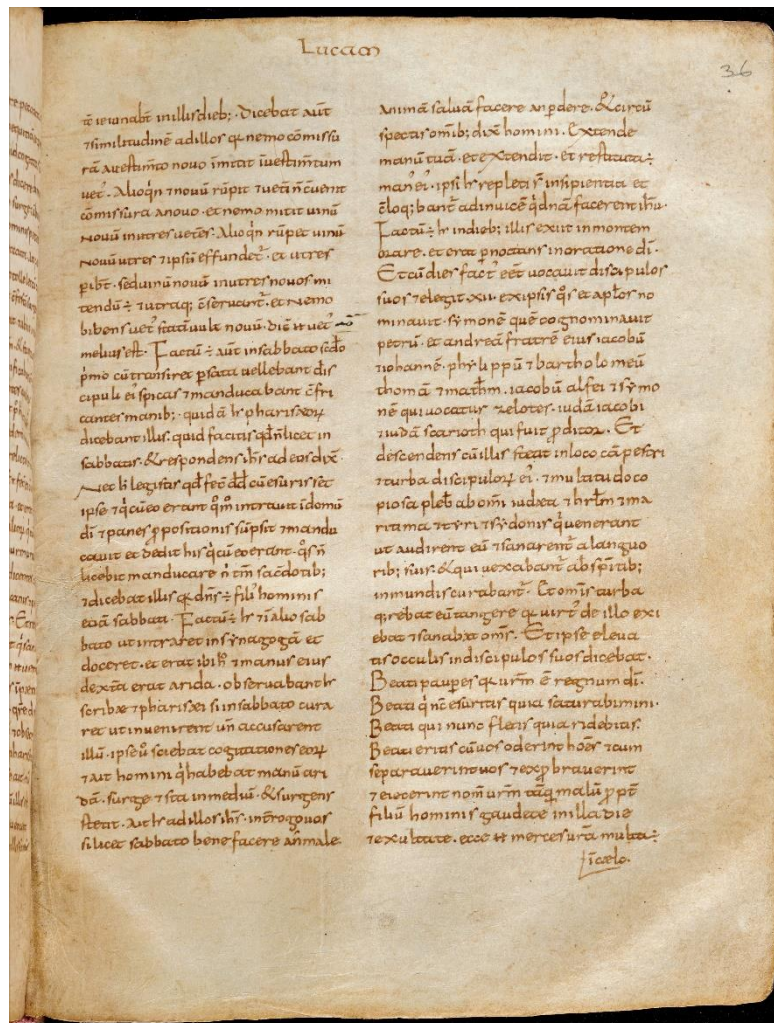 Lucam
36
tē ieiunabt̄ inillisdieb; · Dicebat aūt
⁊similitudinē adillos qr nemo cōmissu
rā auestim̄to nouo īmittit īuestim̄tum
uet̄. Alioqn̄ ⁊nouū rūpit ⁊uetī n̄cuenit
cōmissura anouo · et nemo mittit uinū
Nouū inutres uet̄es. Alioqn̄ rūpet uinū
Nouū utres ⁊ipsū effundet̄ · et utres
ꝑibt̄ · seduinū nouū inutres nouos mi
tendū ÷ ⁊utraq; c̄seruant̄ · et Nemo
bibens uet̄ statī uult nouū · Dic̄
melius est. Factū ÷ aūt insabbato sc̄do
p̄mo cū transiret ꝑsata uellebant dis
cipuli ei' spicas ⁊manducabant c̄fri
cantes manib; · quidā pharisæoꝝ
dicebant illis. quid facitis qd̄n̄licet in
sabbatis. &respondens ih̄s ad eos dix̄ ·
Nec li legistis qd̄ fec̄ dd̄ cū esurisset
ipse ⁊q̇cūeo erant qm̄ intrauit īdomū
dī ⁊panes ꝓpositionis sūpsit ⁊mandu
cauit et dedit his q̇cūeoerant · q̊s n̄
licebit manducare n̄ tm̄ sacdotib;
⁊dicebat illis qr dn̄s ÷ fili' hominis
etiā sabbati. Factū ÷ ⁊ īalio sab
bato ut intraret in sȳnagogā et
doceret. et erat ibi h̄ ⁊manus eius
dext̄a erat arida. obseruabant
scribæ ⁊pharisæi si insabbato cura
ret ut inuenirent un̄ accusarent
illū. ipse ů sciebat cogitationes eoꝝ
⁊ait homini q̇habebat manū ari
dā. surge ⁊sta inmediū. &surgens
stetit. Ait adillos ih̄s. int̄rogo uos
si licet sabbato benefacere an̄ male.
animā saluā facere an ꝑdere. &circū
spectis om̄ib; dix̄ homini. Extende
manū tuā. et extendit. et restituta ÷
man' ei'. ipsi repleti s̄ insipientia et
c̄loq; bant̄ adinuicē q̇dnā facerent ih̄u.
Factū ÷ indieb; illis exiit inmontem
orare. et erat ꝑnoctans inoratione dī.
Et cū dies fact' eēt uocauit discipulos
suos ⁊elegit. xii. exipsis q̊s et apl̄os no
minauit. sȳmonē quē cognominauit
petrū. et andreā fratrē eius iacobū
⁊iohannē. phylippū ⁊bartholomeū
thomā ⁊math̄m. iacobū alfei ⁊sȳmo
nē qui uocatur zelotes. iudā iacobi
⁊iudā scarioth qui fuit ꝓditor. Et
descendens cū illis stetit inloco cāpestri
⁊turba discipuloꝝ ei'. ⁊multitudo co
piosa pleb̄ abomī iudæa ⁊hrl̄m ⁊ma
ritima ⁊tyri ⁊sȳdonis q̇uenerant
ut audirent eū ⁊sanarent̄ alanguo
rib; suis. &qui uexabant̄ absp̄itib;
inmundis curabant̄. Et omīs turba
q̨rebat eū tangere qr uirt' de illo exi
ebat ⁊sanabat om̄s. Et ipse eleua
tis occulis indiscipulos suos dicebat.
Beati pauꝑes qr ur̄m ē regnum dī.
Beati q̇ nc̄ esuritis quia saturabimini.
Beati qui nunc fletis quia ridebitis.
Beati eritis cū uos oderint hoēs ⁊cum
separauerint uos ⁊exꝓbrauerint
⁊eiecerint nom̄ ur̄m tāq̄ malū ꝓpt̄
filiū hominis gaudete inilla die
⁊exultate. ecce merces ur̄a multa ÷
ī cælo.